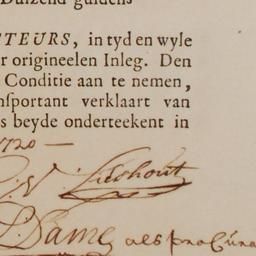 Duizend guldens
CTEURS, in tyd en wyle
r origineelen Inleg. Den
Conditie aan te nemen,
nsportant verklaart van
s beyde onderteekent in
1720 —
Lieshout
als